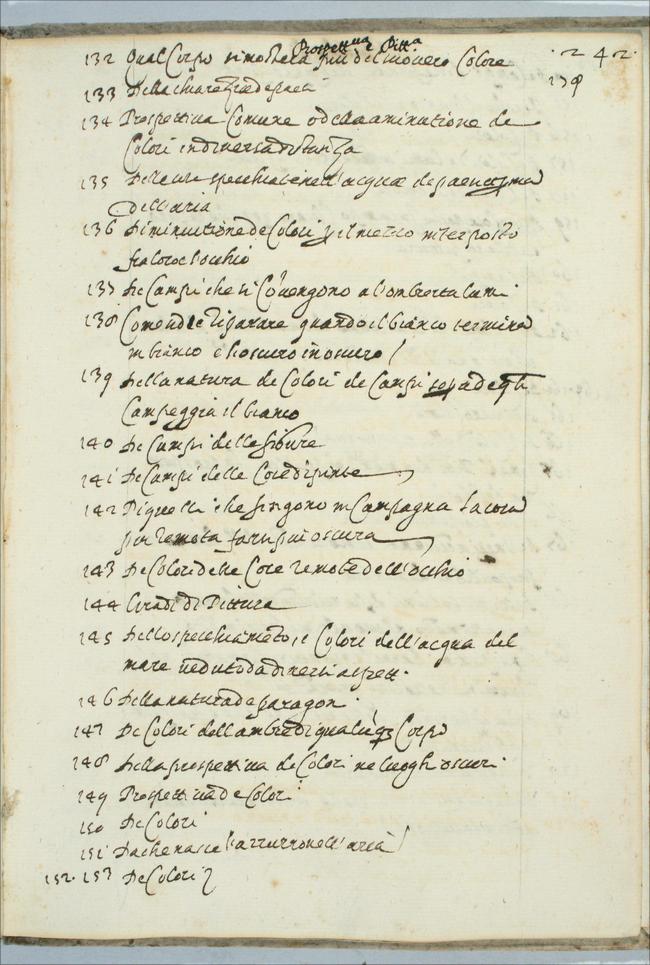 Prospett.ua e Pitt.a
132 Qual Corpo si mostrerà più del mouero Colore
. 2 4 2 .
139
133 Della chiarezza de paesi
134 Prospettiua Comune o della aminutione de
Colori in diuersa distanza
135 Delle cose specchiate nell'acqua de paesi et prima
dell'aria
136 Diminuitione de Colori p il mezzo interposto
fra loro e l'occhio
137 De Campi che si Co͂uengono a l'ombre et a lumi
138 Come deue riparare quando il bianco termina
in bianco e l'oscuro in oscuro /
139 Della natura de Colori de Campi sopra de q.li
Campeggia il bianco
140 De Campi delle figure
141 De Campi delle Cose dipinte
142 Di quelli che fingono in Campagna la cosa
più remota farsi più oscura
143 De Colori delle Cose remote dall'occhio
144 Gradi di Pittura
145 Dello specchiameto, e Colori dell'acqua del
mare ueduto da diuersi aspetti .
146 Della natura de paragoni .
147 De Colori dell'ombre di qualu͂q3 Corpo
148 Della prospettiua de Colori ne luoghi oscuri .
149 Prospettiua de Colori
150 De Colori
151 Da che nasce l'azzurro nell'aria /
152 . 153 De Colori